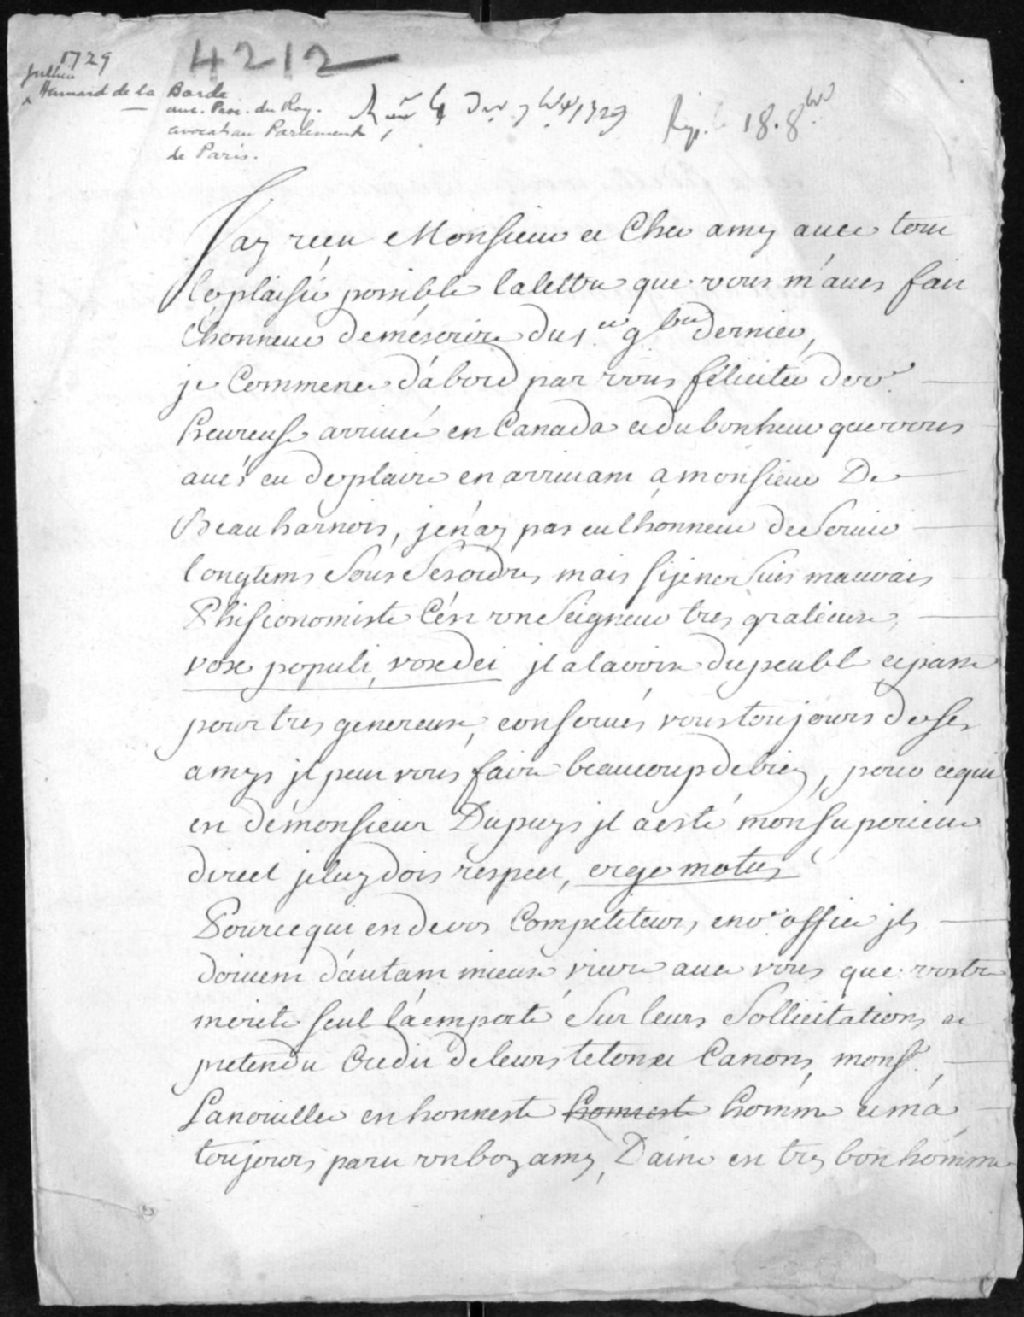 1729
4212
Jullien
Hemard de la Borde
anc. Proc. du Roy.
avocat au Parlement
de Paris.
Receu le 4 7bre 1729
Rep. le 18. 8bre
J'ay receu Monsieur et Cher amy avec tout
le plaisir possible la lettre que vous m'aues fait
l'honneur de mécrire du 1er 9bre dernier,
je Commence d'abord par vous féliciter de vre
heureuse arriueé en Canada et du bonheur que vous
aués eu de plaire en arriuant a monsieur De
Beauharnois, je n'ay pas eu l'honneur de Seruir
longtems Sous Ses ordres mais si je ne Suis mauvais
Phisionomiste C'est un Seigneur tres gratieux,
vox populi, vox dei jl a la voix du peuble et passe
pour tres genereux, conserués vous toujours de ses
amys jl peut vous faire beaucoup de bien, pour ce qui
en de monsieur Dupuys jl a esté mon superieur
direct je luy dois respect, ergo motus
Pour ce qui en de vos Competiteurs en vre office jls
doiuent d'autant mieux viure auec vous que vostre
merite seul l'a emporté Sur leurs Sollicitations et
pretendu Credit de leurs tetons et Canons, monsr.
Lanouille en honneste honneste hommé et m'a
toujours paru un bon amy, Daine en tres bon hommé